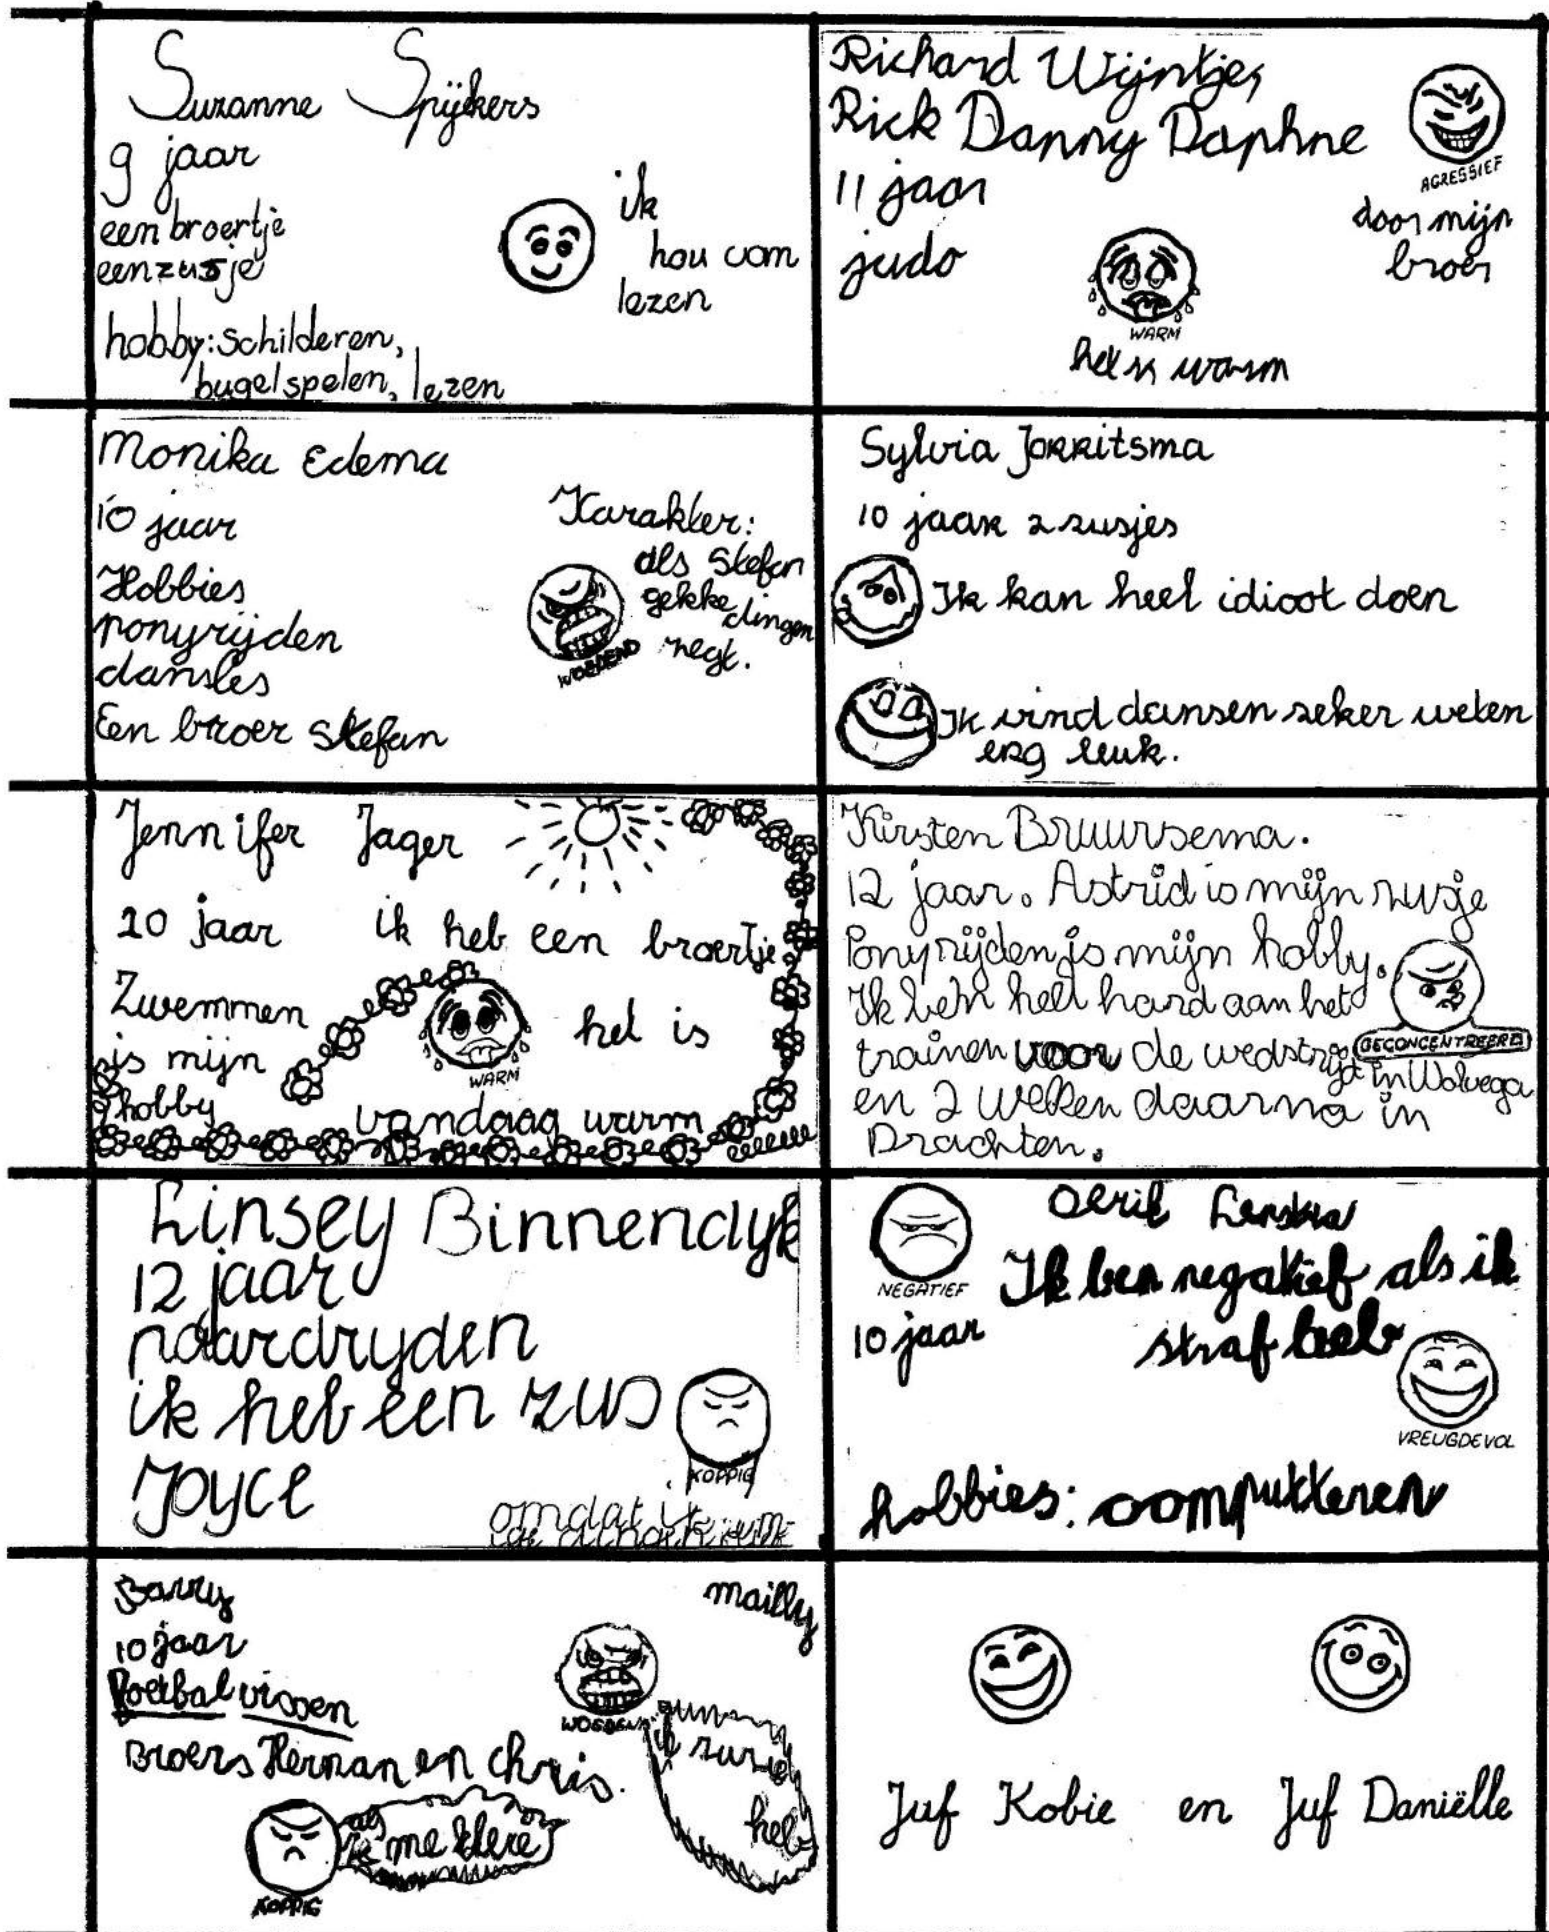 Suzanne Spijkers
9 jaar
een broertje
een zusje
hobby: schilderen,
bugelspelen, lezen
ik
hou van
lezen
Richard Wijntjes
Rick Danny Daphne
11 jaar
judo
AGRESSIEF
door mijn
broer
WARM
het is warm
Monika Edema
10 jaar
Hobbies
ponyrijden
dansles
Een broer Stefan
Karakter:
als Stefan
gekke dingen
zegt.
WOEDEND
Sylvia Jorritsma
10 jaar 2 zusjes
Ik kan heel idioot doen
Ik vind dansen zeker weten
erg leuk.
Jennifer Jager
10 jaar ik heb een broertje
Zwemmen
is mijn
hobby
WARM
het is
vandaag warm
Kirsten Bruursema.
12 jaar. Astrid is mijn zusje
Ponyrijden is mijn hobby.
Ik ben heel hard aan het
trainen voor de wedstrijd in Wolvega
en 2 weken daarna in
Drachten.
GECONCENTREERD
Linsey Binnendijk
12 jaar
paardrijden
ik heb een zus
Joyce
KOPPIG
omdat ik
NEGATIEF
Ik ben negatief als ik
straf heb
10 jaar
VREUGDEVOL
hobbies: computteren
Barry mailly
10 jaar
Voetbal vissen
Broers Herman en chris.
WOEDEND
ik ruzie
heb
als
ik me
KOPPIG
Juf Kobie en Juf Daniëlle